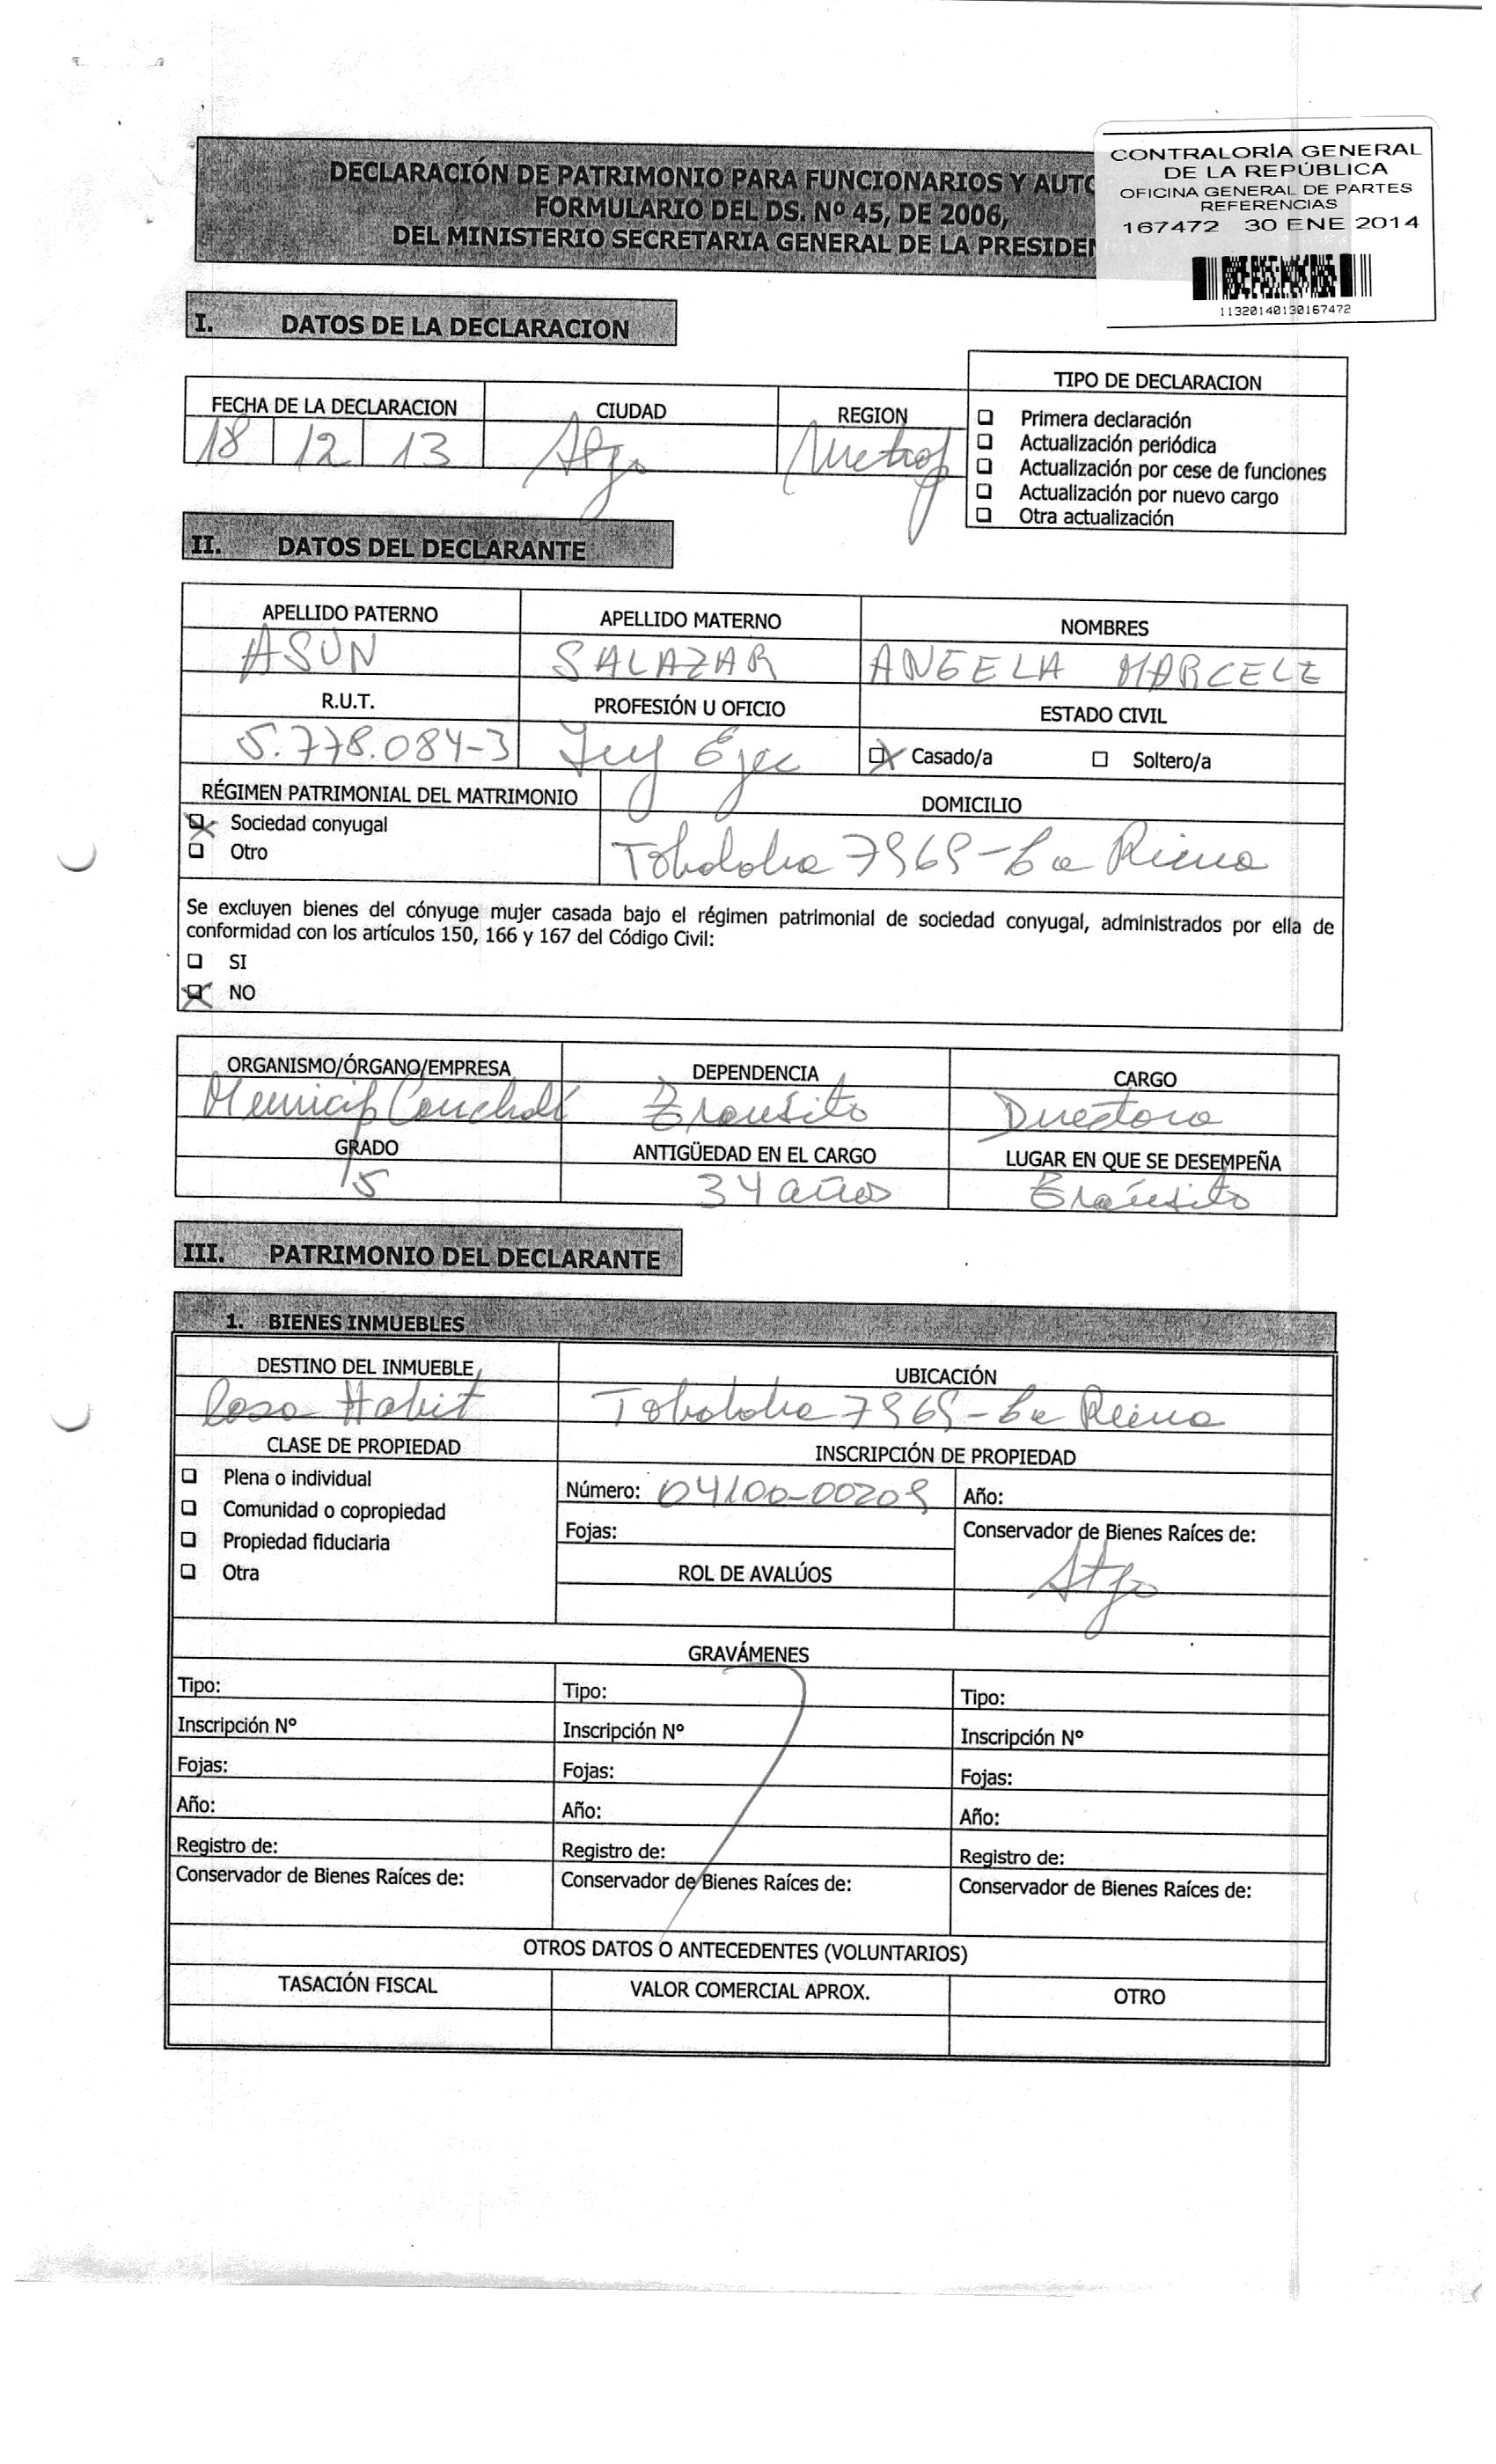 CONTRALORÍA GENERAL
DE LA REPÚBLICA
OFICINA GENERAL DE PARTES
REFERENCIAS
167472 30 ENE 2014
11320140130167472
DECLARACIÓN DE PATRIMONIO PARA FUNCIONARIOS Y AUTO
FORMULARIO DEL DS. Nº 45, DE 2006,
DEL MINISTERIO SECRETARIA GENERAL DE LA PRESIDEN
I. DATOS DE LA DECLARACION
FECHA DE LA DECLARACION CIUDAD REGION
18 12 13 Stgo Metrop
TIPO DE DECLARACION
Primera declaración
Actualización periódica
Actualización por cese de funciones
Actualización por nuevo cargo
Otra actualización
II. DATOS DEL DECLARANTE
APELLIDO PATERNO APELLIDO MATERNO NOMBRES
ASUN SALAZAR ANGELA MARCELE
R.U.T. PROFESIÓN U OFICIO ESTADO CIVIL
5.778.084-3 Ejec Casado/a Soltero/a
RÉGIMEN PATRIMONIAL DEL MATRIMONIO DOMICILIO
Sociedad conyugal
Otro
Tobalaba 7969-La Reina
Se excluyen bienes del cónyuge mujer casada bajo el régimen patrimonial de sociedad conyugal, administrados por ella de
conformidad con los artículos 150, 166 y 167 del Código Civil:
SI
NO
ORGANISMO/ÓRGANO/EMPRESA DEPENDENCIA CARGO
Municip Conchalí Tránsito Directora
GRADO ANTIGÜEDAD EN EL CARGO LUGAR EN QUE SE DESEMPEÑA
34 años Tránsito
III. PATRIMONIO DEL DECLARANTE
1. BIENES INMUEBLES
DESTINO DEL INMUEBLE UBICACIÓN
Casa Habit Tobalaba 7969-La Reina
CLASE DE PROPIEDAD INSCRIPCIÓN DE PROPIEDAD
Plena o individual
Comunidad o copropiedad
Propiedad fiduciaria
Otra
Número: 04100-00209 Año:
Fojas: Conservador de Bienes Raíces de:
ROL DE AVALÚOS Stgo
GRAVÁMENES
Tipo: Tipo: Tipo:
Inscripción Nº Inscripción Nº Inscripción Nº
Fojas: Fojas: Fojas:
Año: Año: Año:
Registro de: Registro de: Registro de:
Conservador de Bienes Raíces de: Conservador de Bienes Raíces de: Conservador de Bienes Raíces de:
OTROS DATOS O ANTECEDENTES (VOLUNTARIOS)
TASACIÓN FISCAL VALOR COMERCIAL APROX. OTRO